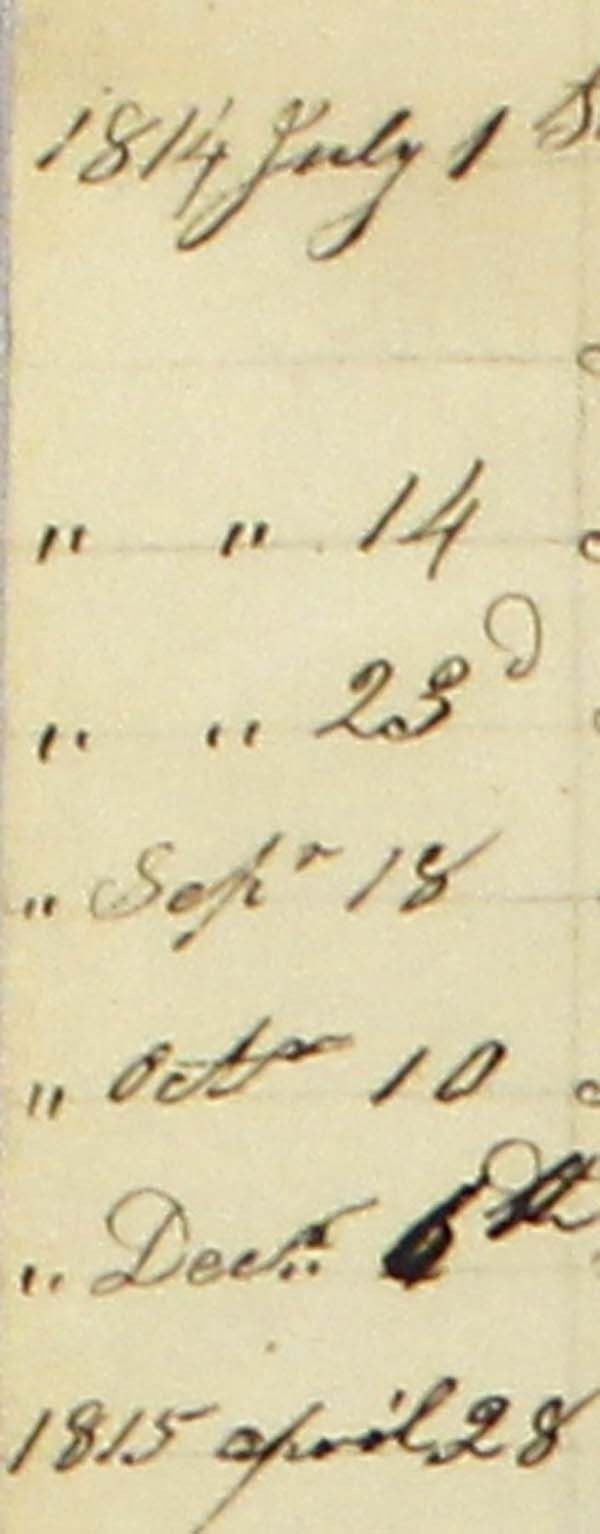 1814 July 1
" " 14
" " 23d
" Sepr 18
" Octr 10
" Decr 6th
1815 april 28